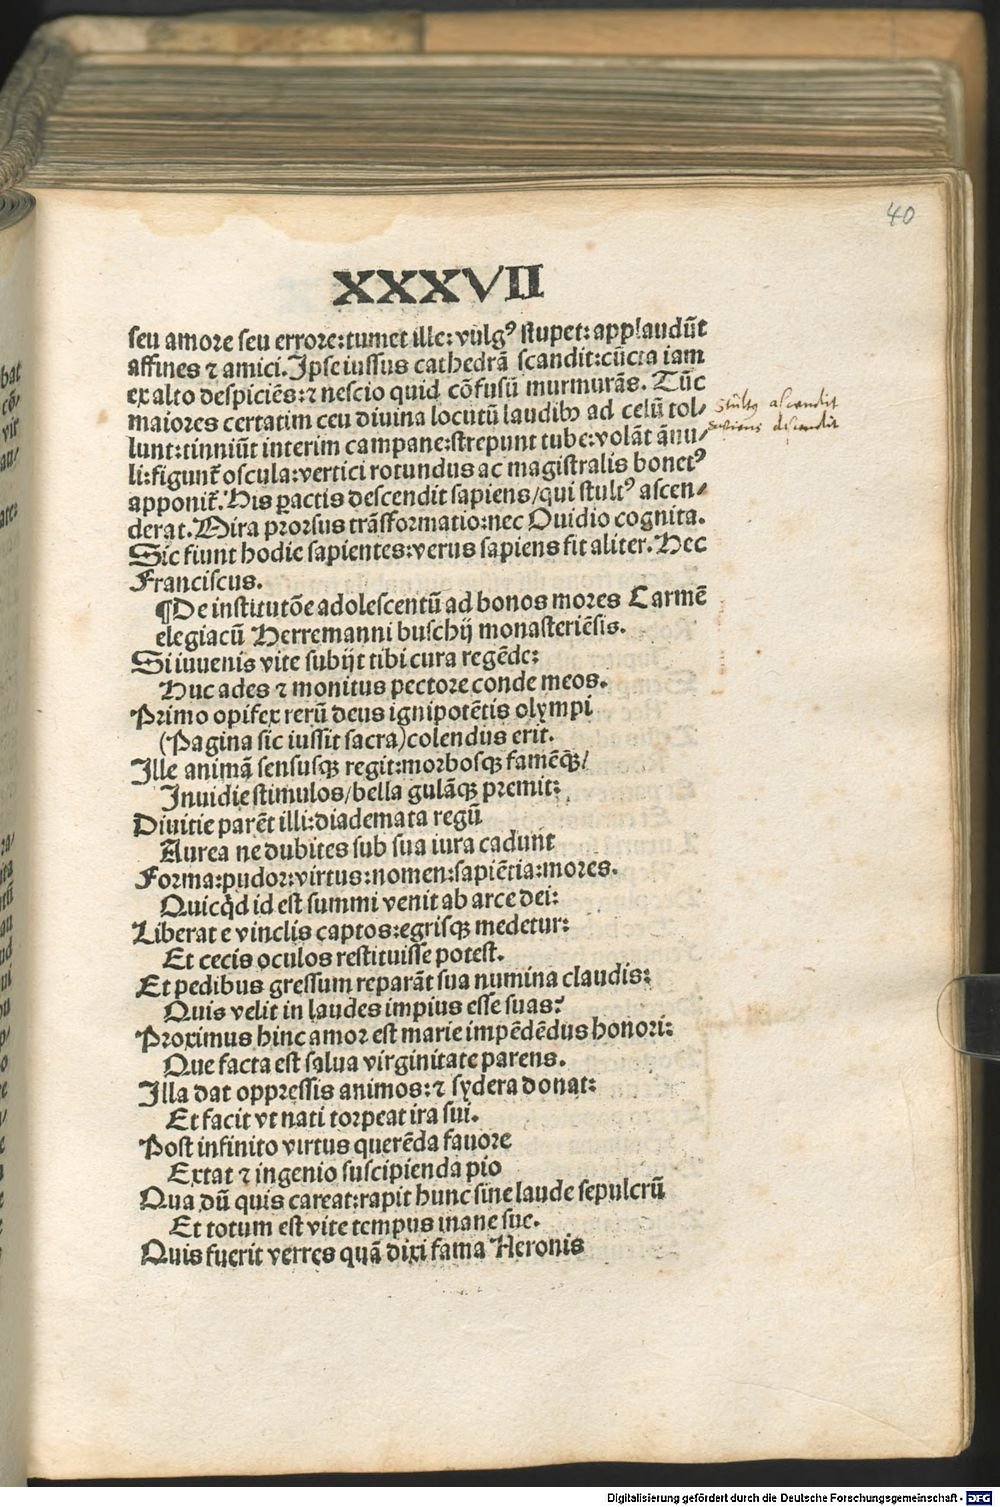 40
XXXVII
seu amore seu errore:tumet ille: vulgꝰ stupet: applaudūt
affines ⁊ amici. Ipse iussus cathedrā scandit:cūcta iam
ex alto despiciēs:⁊ nescio quid cōfusū murmurās. Tūc
maiores certatim ceu diuina locutū laudibꝫ ad celū tol⸗
lunt:tinniūt interim campane:strepunt tube:volāt ānu⸗
li:figunt᷑ oscula:vertici rotundus ac magistralis bonetꝰ
apponit᷑. His ꝑactis descendit sapiens/qui stultꝰ ascen⸗
derat. Mira prorsus trāsformatio:nec Ouidio cognita.
Sic fiunt hodie sapientes:verus sapiens fit aliter. Hec
Franciscus.
¶De institutōe adolescentū ad bonos mores Carmē
elegiacū Herremanni buschij monasteriēsis.
Stultꝰ ascendit
sapiens descendit
Si iuuenis vite subijt tibi cura regēde:
Huc ades ⁊ monitus pectore conde meos.
Primo opifex rerū deus ignipotētis olympi
(Pagina sic iussit sacra)colendus erit.
Ille animā sensusqꝫ regit:morbosqꝫ famēqꝫ/
Inuidie stimulos/bella gulāqꝫ premit:
Diuitie parēt illi:diademata regū
Aurea ne dubites sub sua iura cadunt
Forma:pudor:virtus:nomen:sapiētia:mores.
Quicqͥd id est summi venit ab arce dei:
Liberat e vinclis captos:egrisqꝫ medetur:
Et cecis oculos restituisse potest.
Et pedibus gressum reparāt sua numina claudis:
Quis velit in laudes impius esse suas?
Proximus hinc amor est marie impēdēdus honori:
Que facta est salua virginitate parens.
Illa dat oppressis animos:⁊ sydera donat:
Et facit vt nati torpeat ira sui.
Post infinito virtus querēda fauore
Extat ⁊ ingenio suscipienda pio
Qua dū quis careat:rapit hunc sine laude sepulcrū
Et totum est vite tempus inane sue.
Quis fuerit verres quā dixi fama Neronis
Digitalisierung gefördert durch die Deutsche Forschungsgemeinschaft - DFG